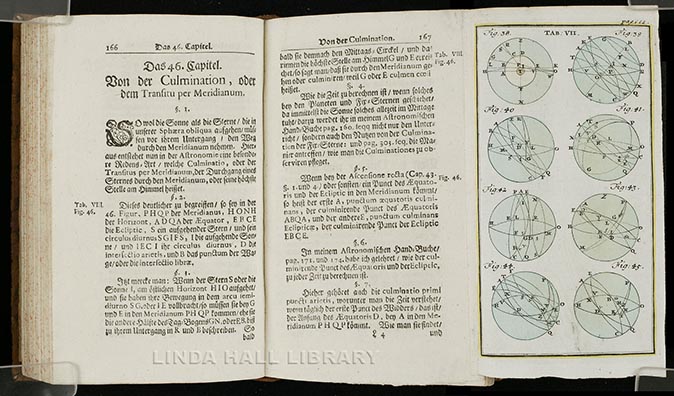 166 Das 46. Capitel.
Das 46. Capitel.
Von der Culmination, oder
dem Transitu per Meridianum.
§. 1.
So wol die Sonne als die Sterne / die in
unserer Sphæra obliqua aufgehen / müs
sen vor ihrem Untergang / den Weg
durch den Meridianum nehmen. Hier
aus entstehet man in der Astronomie eine besonde
re Redens-Art / welche Culminatio, oder der
Transitus per Meridianum, der Durchgang eines
Sternes durch den Meridianum, oder seine höchste
Stelle am Himmel heisset.
§. 2.
Tab. VII.
Fig. 46.
Dieses deutlicher zu begreiffen / so sey in der
46. Figur, PHQP der Meridianus, HONH
der Horizont, ADQA der Æquator, EBCE
die Ecliptic, S ein aufgehender Stern / und sein
circulus diurnus SGIFS, I die aufgehende Son
ne / und IECI ihr circulus diurnus, D die
intersectio arietis, und B das punctum der Wa
ge / oder die intersectio libræ.
§. 3.
Itzt mercke man: Wenn der Stern S oder die
Sonne I, am östlichen Horizont HIO aufgehet /
und sie haben ihre Bewegung in dem arcu semi-
diurno SG, oder IE vollbracht / so müssen sie bey G
und E in den Meridianum PHQP kommen / ehe sie
die andere Hälfte des Tag-Bogens GN, oder ER biß
zu ihrem Untergang in R und R beschreiben. So
bald
Von der Culmination. 167
bald sie demnach den Mittags-Circkel / und da
rinnen die höchste Stelle am Himmel G und E errei
chet / so sagt man / daß sie durch den Meridianum ge
hen oder culminiren / weil G oder E culmen coeli
heisset.
Tab. VII.
Fig. 46.
§. 4.
Wie die Zeit zu berechnen ist / wenn solches
bey den Planeten und Fix-Sternen geschiehet /
da immittelst die Sonne solches allezeit im Mittage
thut / darzu werdet ihr in meinem Astronomischen
Hand-Buche pag. 160. seqq. nicht nur den Unter
richt / sondern auch den Nutzen von der Culmina
tion der Fix-Sterne: und pag. 305. seq. die Ma
nier antreffen / wie man die Culminationes zu ob
serviren pfleget.
§. 5.
Wenn bey der Ascensione recta (Cap. 43.
§. 1. und 4.) oder sonsten / ein Punct des Æquato
ris und der Ecliptic in den Meridianum kömmt /
so heist der erste A, punctum æquatoris culmi
nans, der culminirende Punct des Æquatoris
ABQA, und der andere E, punctum culminans
Eclipticæ, der culminirende Punct der Ecliptic
EBCE.
Fig. 46.
§. 6.
In meinem Astronomischen Hand-Buche /
pag. 171. und 174. habe ich gelehret / wie der cul
minirende Punct des Æquatoris und der Eclipticæ,
zu jeder Zeit zu berechnen ist.
§. 7.
Hieher gehöret auch die culminatio primi
puncti arietis, worunter man die Zeit verstehet /
wenn täglich der erste Punct des Widders / das ist /
der Anfang des Æquatoris D, bey A in den Me
ridianum PHQP kömmt. Wie man sie findet /
L 4 und
TAB: VII.
Fig. 38. Fig. 39
Fig. 40 Fig. 41.
Fig. 42 Fig. 43.
Fig. 44. Fig. 45.
LINDA HALL LIBRARY